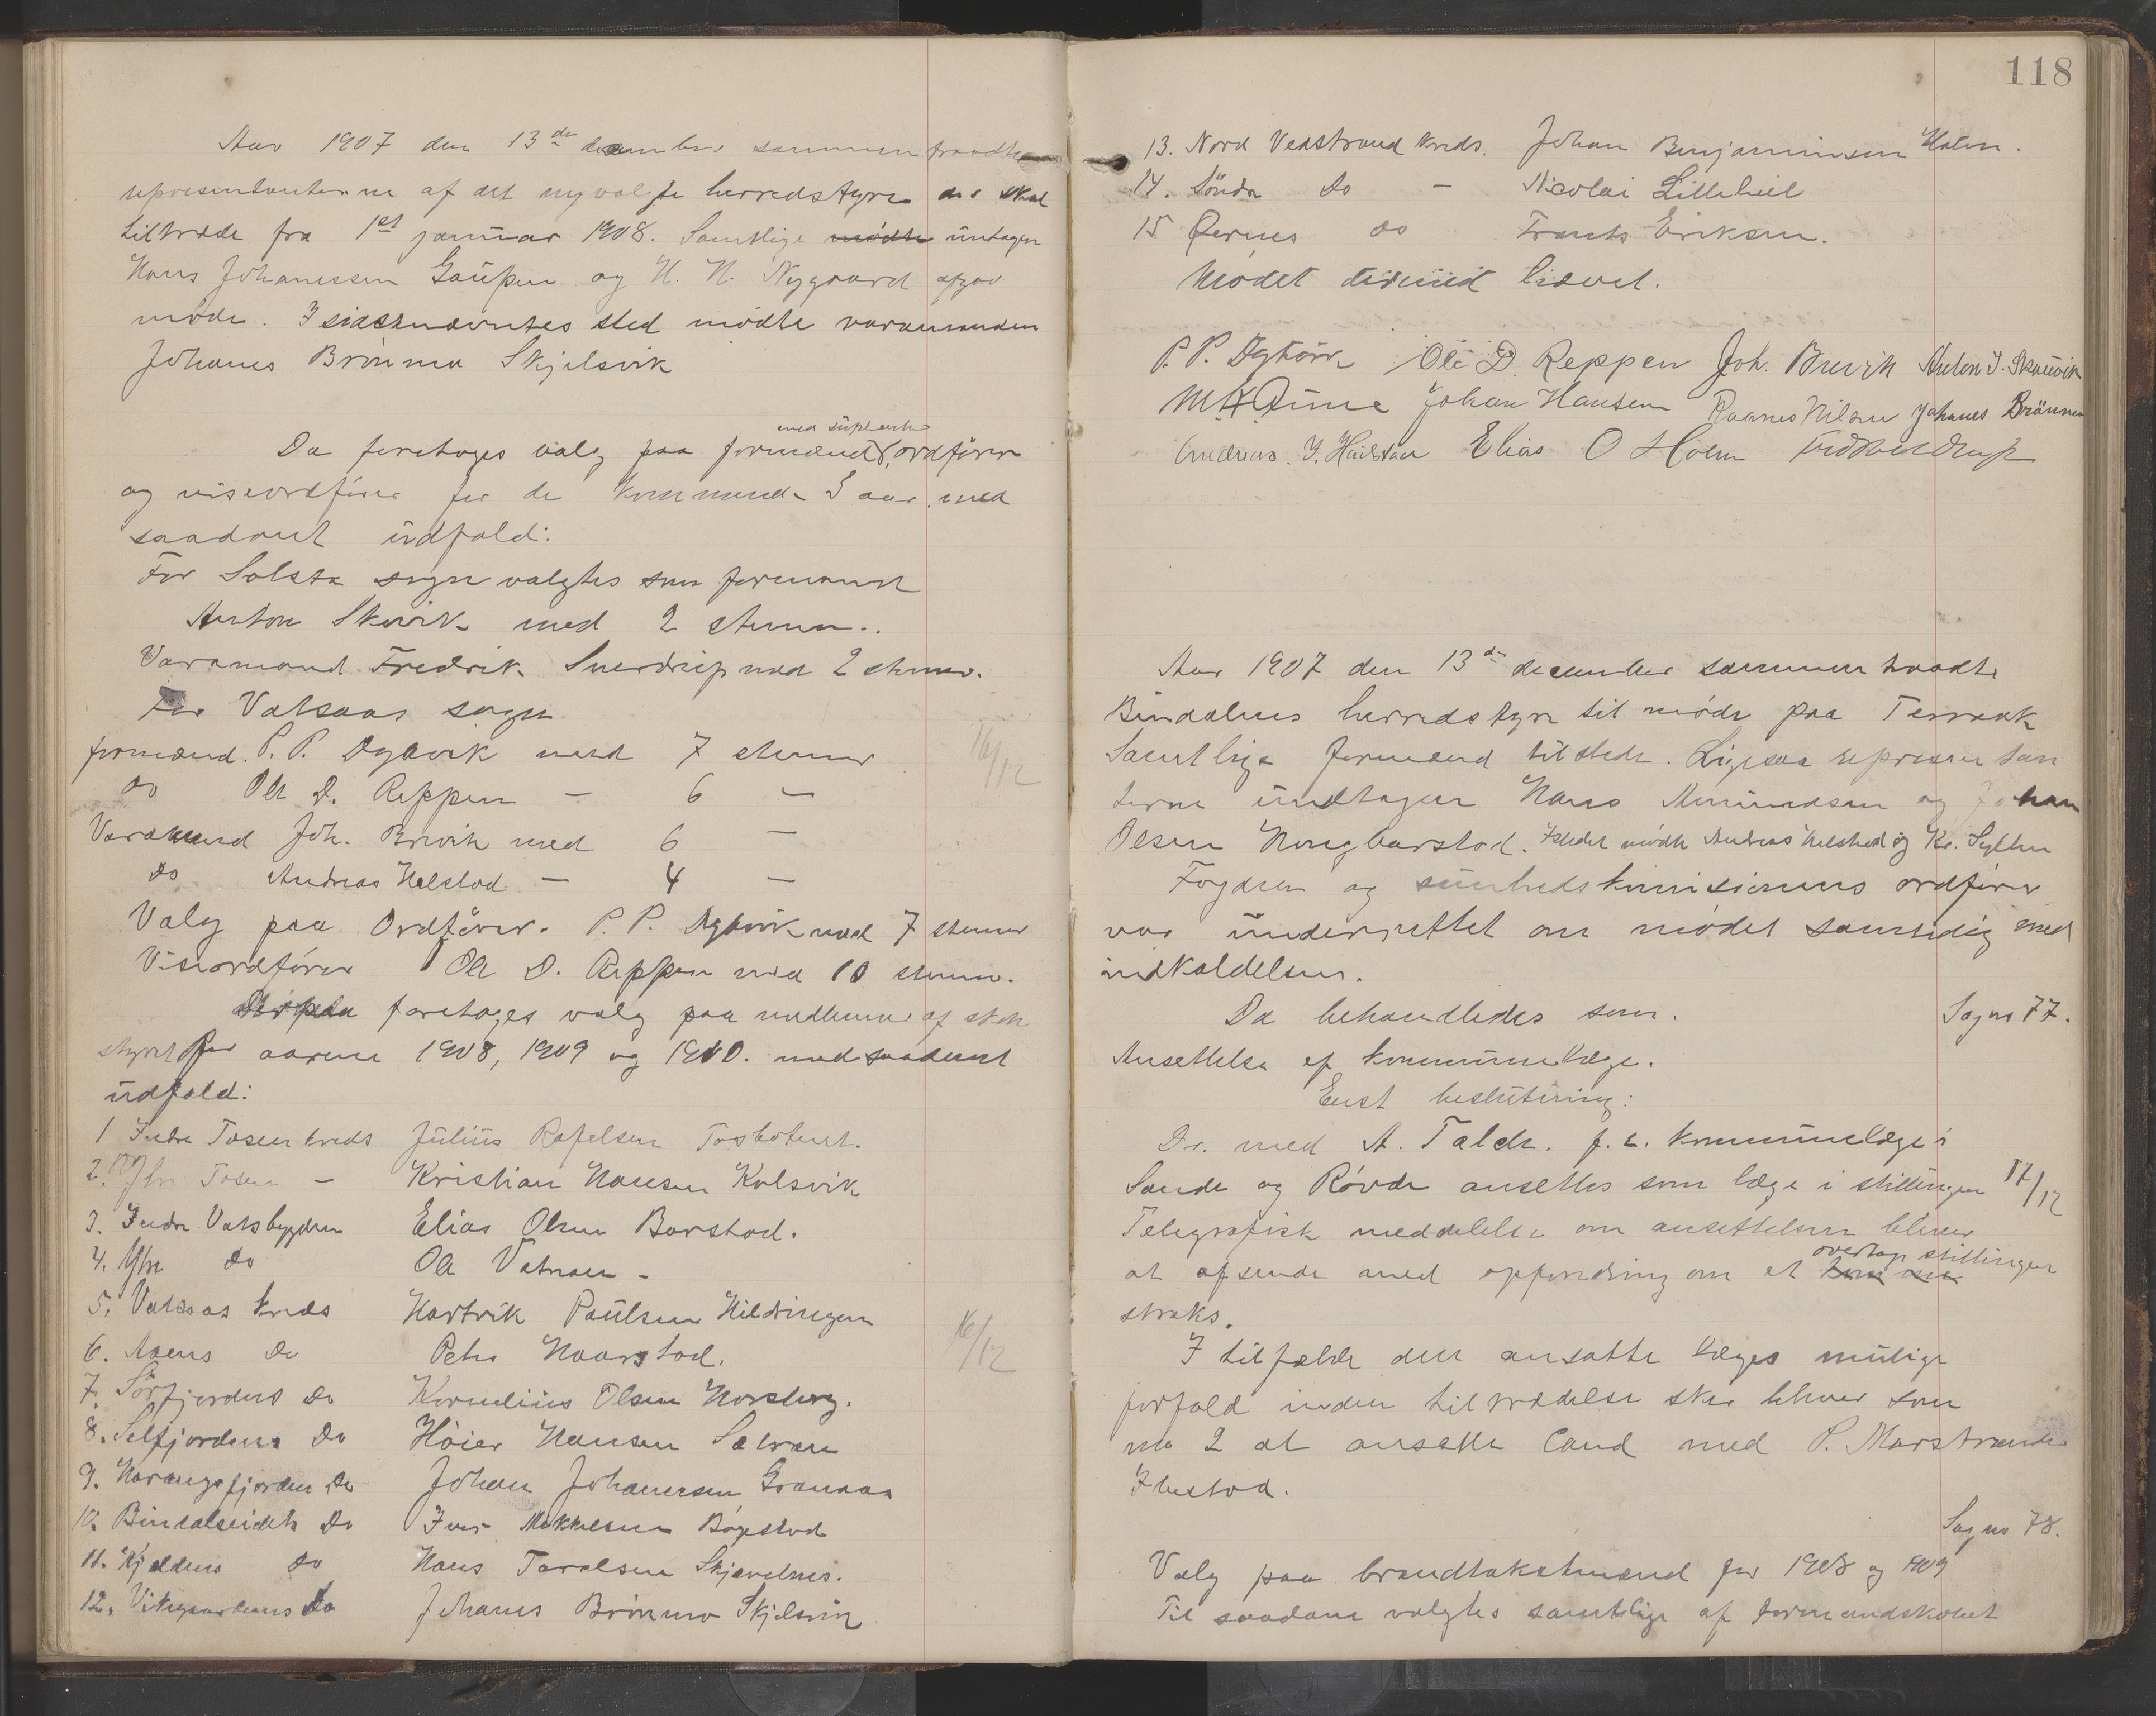 Aar 1907 den 13de december sammentraadte
representanterne af det nyvalgte herredstyre der skal
tiltræde fra 1st januar 1908. Samtlige mødte undtagen
Hans Johanessen Gaupen og H. H. Nygaard
møde. I sidstnævntes sted mødte varamanden
Johanes Brönmo Skjelsvik
med suplanter
Da foretages valg paa formænd, ordförer
og viseordförer for de kommende 3 aar med
saadant udfald:
For Solsta sogn valgtes som formand
Anton Skavik med 2 stemmer.
Varamand Fredrik Sverdrup med 2 stemmer.
For Vatsaas sogn
formænd. P. P. Dybvik med 7 stemmer
16/12
do Ole D. Reppen – 6 –
Varamænd Joh. Brevik med 6 –
do Andreas Helstad – 4 –
Valg paa Ordförer. P. P. Dybvik med 7 stemmer
Viseordförer Ole D. Reppen med 10 stemmer.
foretages valg paa medlemmer af skole
styret for aarene 1908, 1909 og 1910. med saadant
udfald:
1 Indre Tosen kreds Julius Rafelsen Tosbotnet.
2. Ytre Tosen – Kristian Hansen Kolsvik
3. Indre Vatsbygden Elias Olsen Barstad.
4. Ytre do Ole Vatnaen –
5. Vatsaas kreds Hartvik Paulsen Hildringen
6. Aaens do Peter Haarstad.
16/12
7. Sörfjordens do Kornelius Olsen Horsberg.
8. Selfjordens do Höier Hansen Sælvæn
9. Harangsfjorden do Johan Johanessen Granaas
10. Bindalseidets do Iver Mikkelsen Bøgestad
11. Kjeldnes do Hans Taralsen Skjevelnes.
12. Vikgaardens do Johanes Brönmo Skjelsvik
118
13. Nord Vedstrand kreds. Johan Benjaminsen Holm.
14. Söndre do – Nicolai Lillehiel
15 Øernes do Frants Eriksen.
Mødet dermed hævet.
P. P. Dybvik Ole D. Reppen Joh. Brevik Anton J. Skavvik
M Aune Johan Hansen Nilsen Johanes Brönmo
Andreas J. Heilstad Elias O Holm
Aar 1907 den 13de december sammentraadte
Bindalens herredstyre til møde paa Terraak
Samtlige formænd tilstede. Ligesaa represæntan
terne undtagen Hans Amundsen og Johan
Olsen Hougbarstad. Istedet mødte Andreas Helstad og Kr. Sylten
Fogden og sundhedskomisionens ordförer
var underrettet om mødet samtidig med
indkaldelsen.
Da behandledes som.
Sag no 77.
Ansettelse af kommunelæge.
Enst beslutning:
Dr. med A. Falch. f. t. kommunelæge i
Sande og Røvde ansettes som læge i stillingen
17/12
Telegrafisk meddelelse om ansettelsen bliver
overtage stillingen
at afsende med opfordring om at
straks.
I tilfælde den ansatte læges mulige
forfald inden tiltrædelse sker bliver som
no 2 at ansette Cand med P. Marstrander
Ibestad.
Sag no 78.
Valg paa brandtakstmænd for 1908 og 1909
Til saadane valgtes samtlige af formandskabet